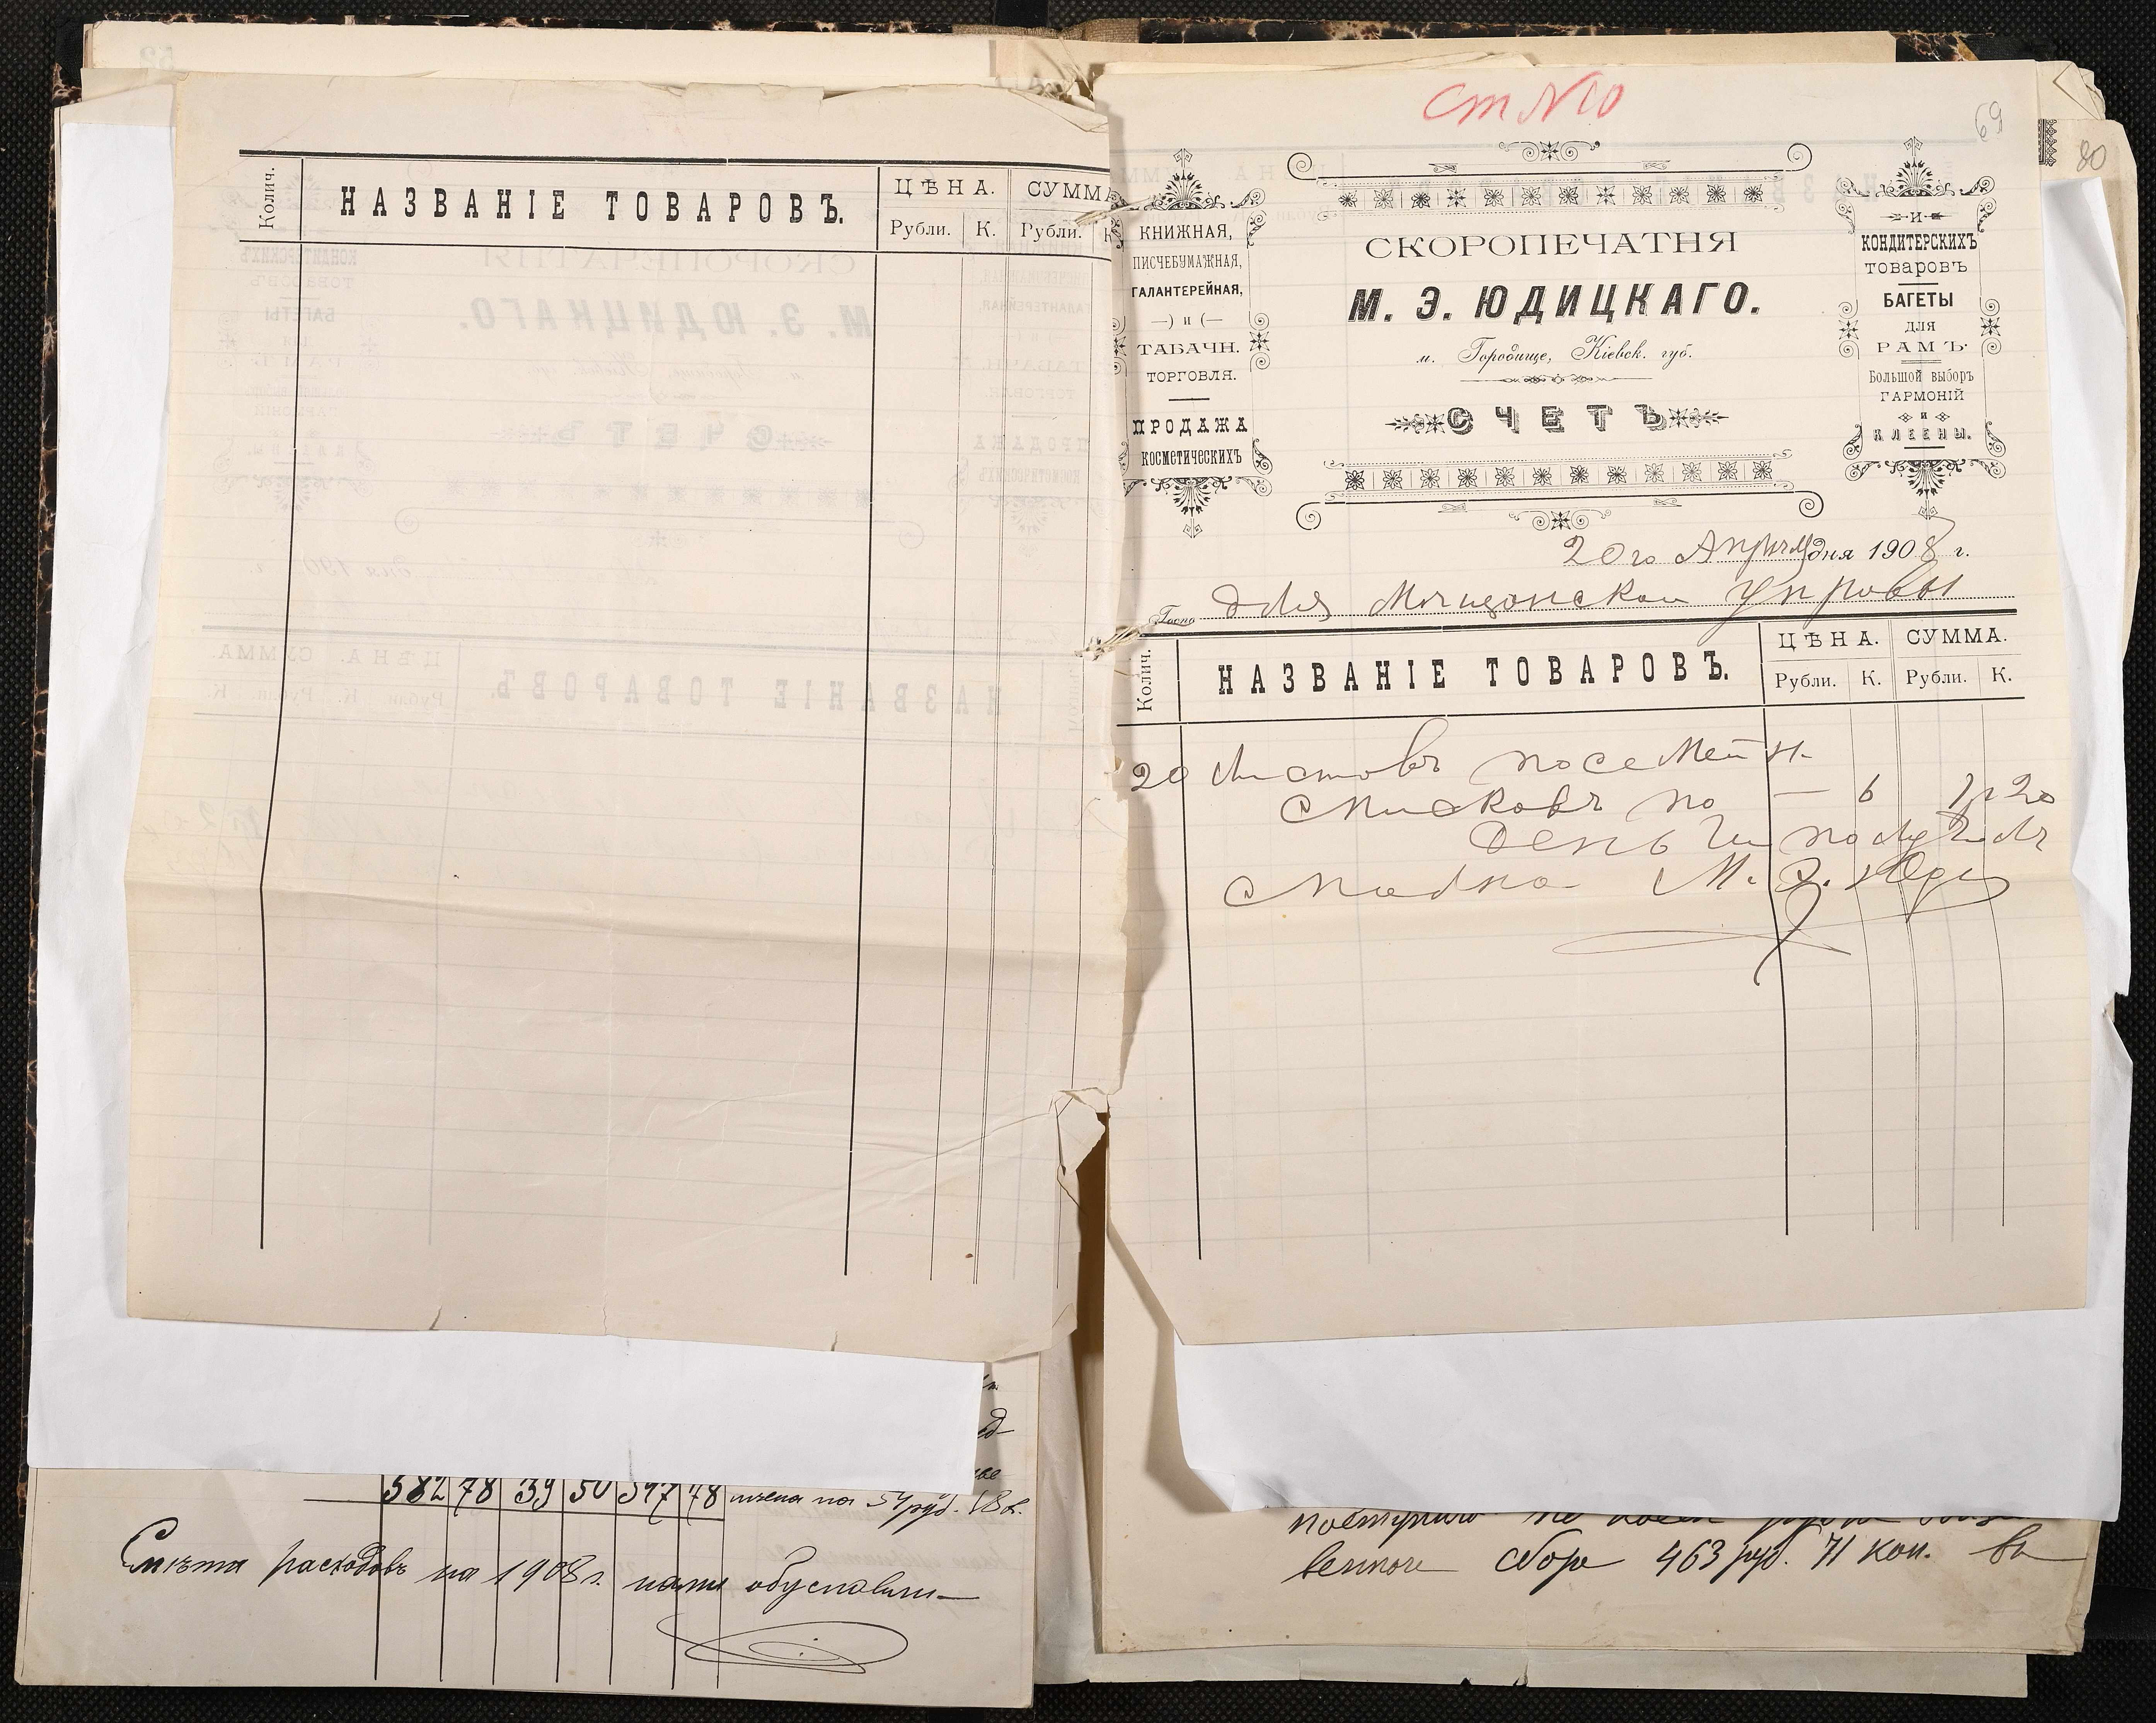 Колич.
НАЗВАНІЕ ТОВАРОВЪ.
ЦѢНА.
СУММА
Рубли.
К.
Рубли.
К
ст №10
69
80
КНИЖНАЯ,
ПИСЧЕБУМАЖНАЯ,
ГАЛАНТЕРЕЙНАЯ,
—) и (—
ТАБАЧН.
ТОРГОВЛЯ.
ПРОДАЖА
КОСМЕТИЧЕСКИХЪ
СКОРОПЕЧАТНЯ
М. Э. ЮДИЦКАГО.
м. Городище, Кіевск. губ.
СЧЕТЪ
И
КОНДИТЕРСКИХЪ
товаровъ
БАГЕТЫ
ДЛЯ
РАМЪ
Большой выборъ
ГАРМОНІЙ
и
КЛЕЕНЫ.
20го Апреля дня 1908 г.
Госпо для Мещанской Управы
Колич.
НАЗВАНІЕ ТОВАРОВЪ.
ЦѢНА.
СУММА.
Рубли.
К.
Рубли.
К.
20 Листовъ посемейн.
списковъ по — 6 1р 20
деньги получилъ
сполна М. Э. Юди
582 78 39 50 547 78 54 руб. 18 к.
Смѣта расходовъ на 1908 г. нами
венного сбора 463 руб. 71 коп. въ